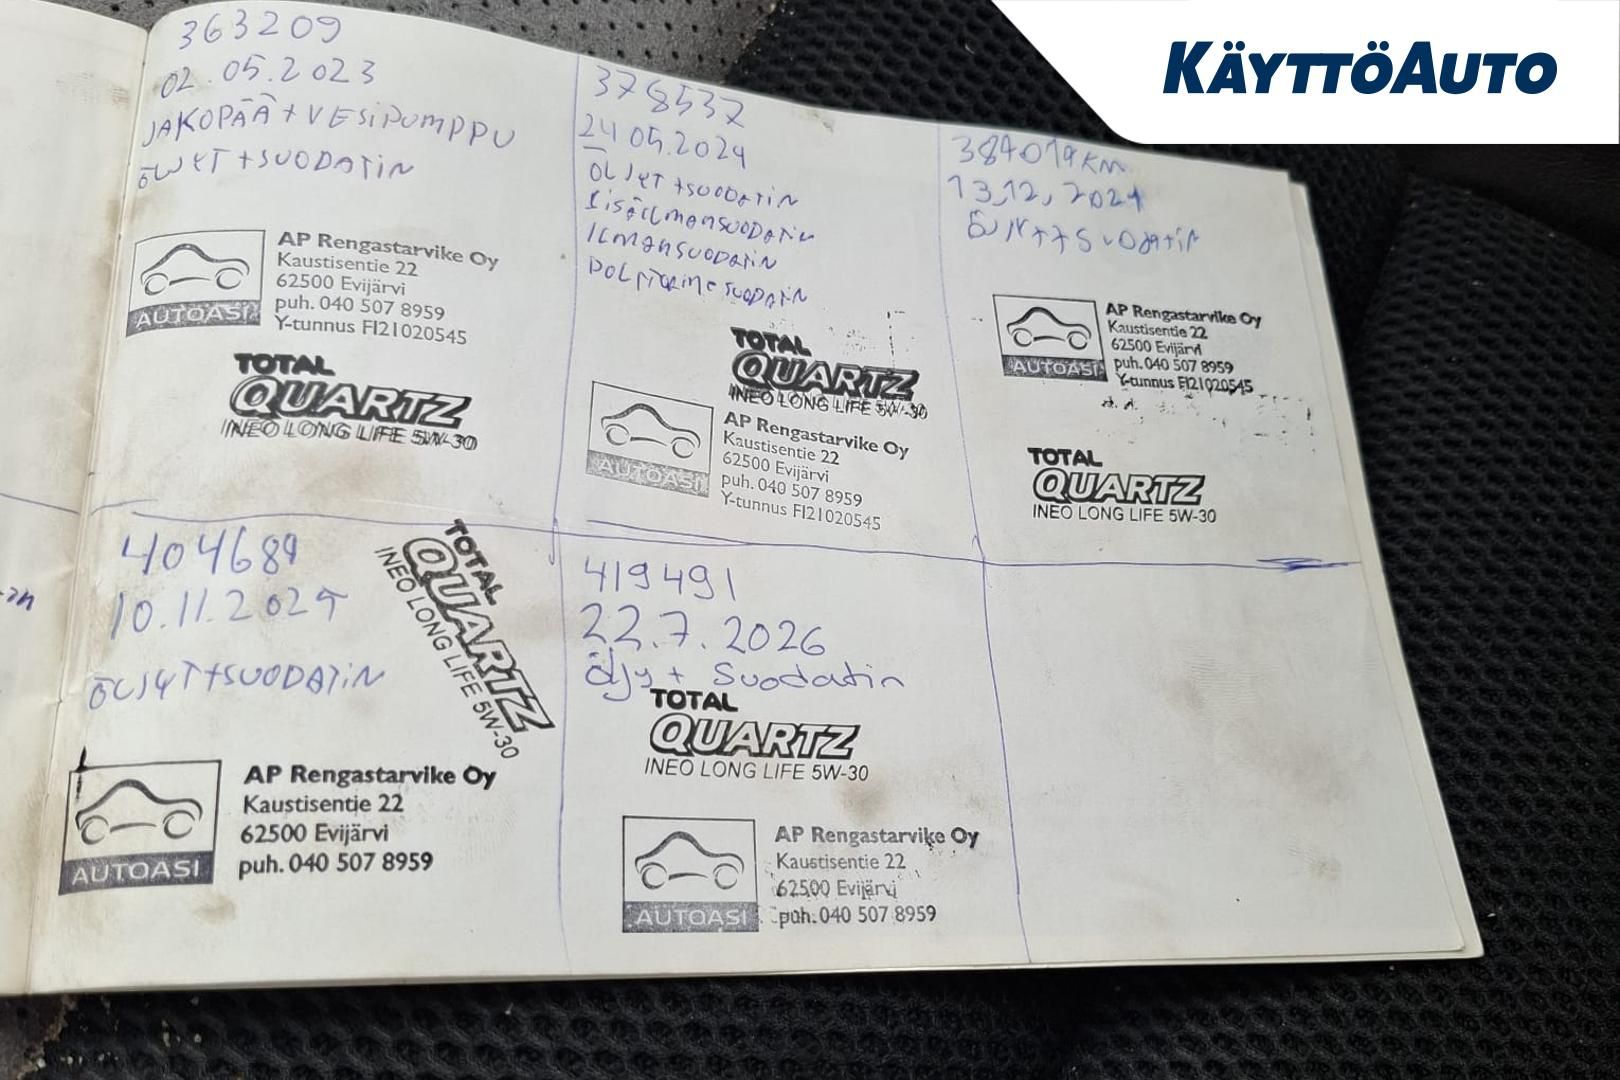 KÄYTTÖAUTO
363209
02.05.2023
JAKOPÄÄ + VESIPUMPPU
ÖLJYT + SUODATIN
AUTOASI
AP Rengastarvike Oy
Kaustisentie 22
62500 Evijärvi
puh. 040 507 8959
Y-tunnus FI21020545
TOTAL
QUARTZ
INEO LONG LIFE 5W-30
378537
24.05.2024
ÖLJYT + SUODATIN
LISÄILMANSUODATIN
ILMANSUODATIN
POLTTOAINESUODATIN
TOTAL
QUARTZ
INEO LONG LIFE 5W-30
AUTOASI
AP Rengastarvike Oy
Kaustisentie 22
62500 Evijärvi
puh. 040 507 8959
Y-tunnus FI21020545
KM
13,12,
SUODATIN
AUTOASI
AP Rengastarvike Oy
Kaustisentie 22
62500 Evijärvi
puh. 040 507 8959
Y-tunnus FI21020545
TOTAL
QUARTZ
INEO LONG LIFE 5W-30
404689
10.11.2025
ÖLJYT + SUODATIN
TOTAL
QUARTZ
INEO LONG LIFE 5W-30
AUTOASI
AP Rengastarvike Oy
Kaustisentie 22
62500 Evijärvi
puh. 040 507 8959
419491
22.7.2026
öljy + Suodatin
TOTAL
QUARTZ
INEO LONG LIFE 5W-30
AUTOASI
AP Rengastarvike Oy
Kaustisentie 22
62500 Evijärvi
puh. 040 507 8959